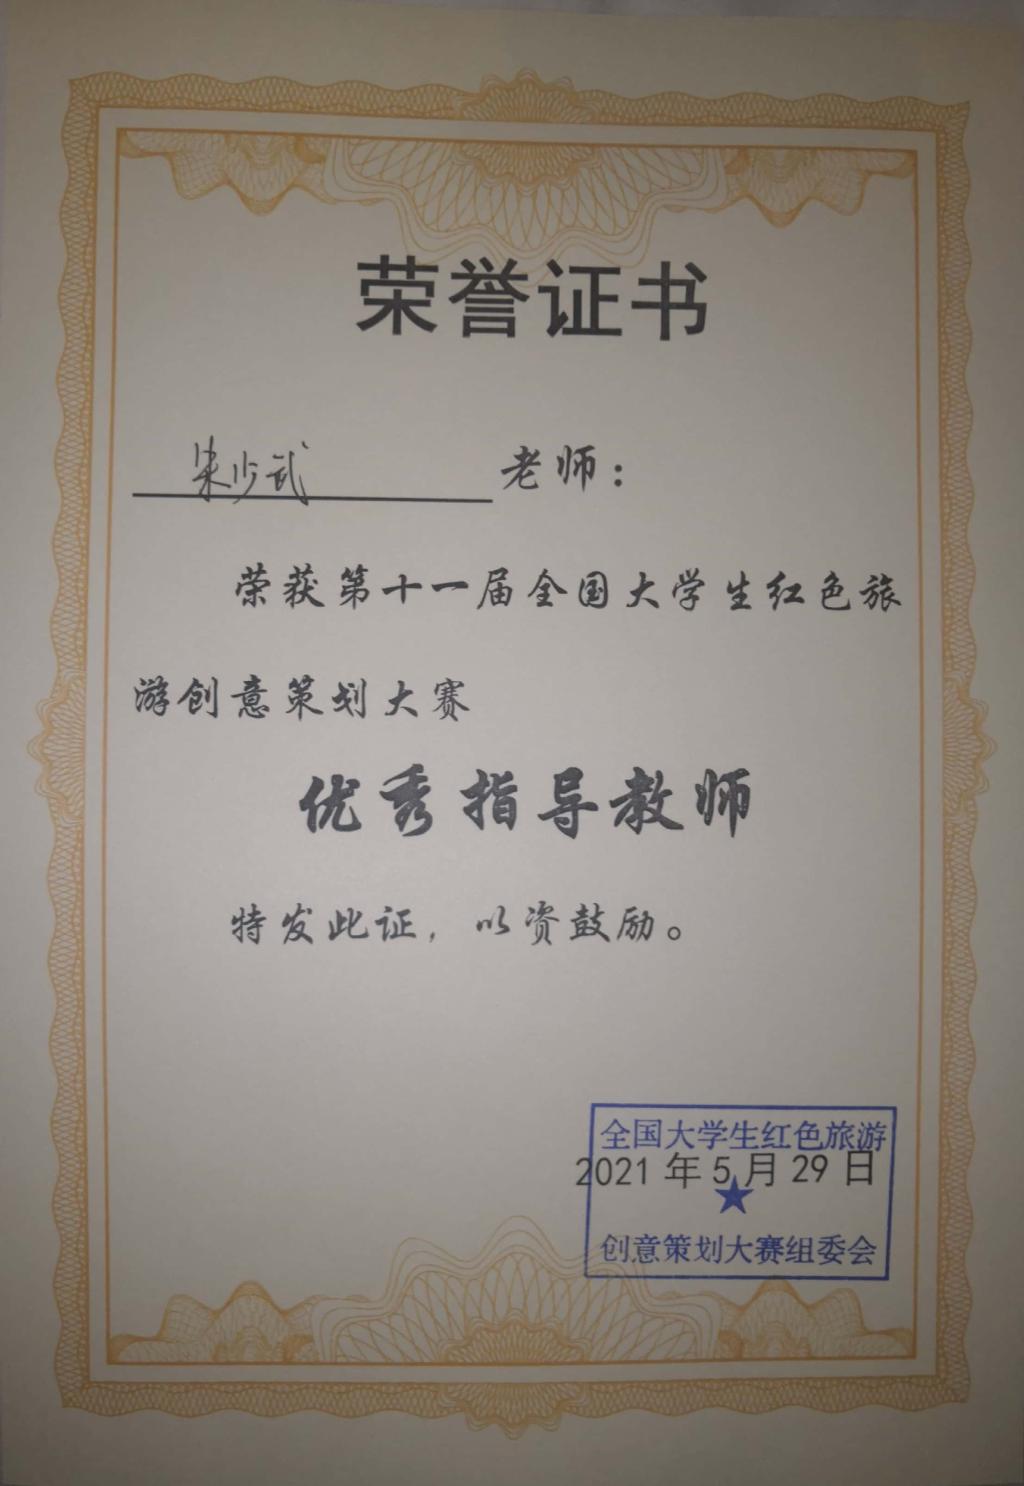 荣誉证书
朱少武 老师：
荣获第十一届全国大学生红色旅
游创意策划大赛
优秀指导教师
特发此证，以资鼓励。
全国大学生红色旅游
2021 年 5 月 29 日
创意策划大赛组委会